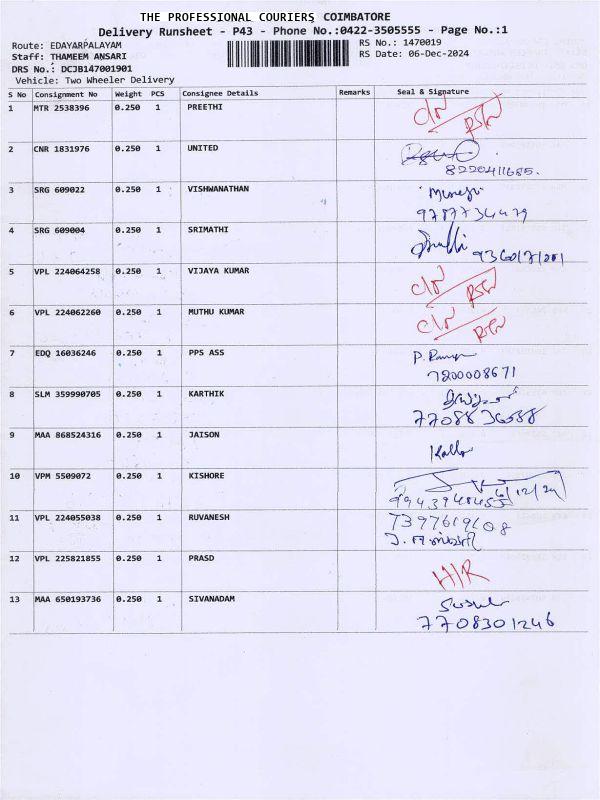 THE PROFESSIONAL COURIERS COIMBATORE
Delivery Runsheet - P43 - Phone No.:0422-3505555 - Page No.:1
Route: EDAYARPALAYAM
Staff: THAMEEM ANSARI
DRS No.: DCJB147001901
Vehicle: Two Wheeler Delivery
RS No.: 1470019
RS Date: 06-Dec-2024
S No Consignment No Weight PCS Consignee Details Remarks Seal & Signature
1 MTR 2538396 0.250 1 PREETHI
2 CNR 1831976 0.250 1 UNITED
8220411685.
3 SRG 609022 0.250 1 VISHWANATHAN
9787734479
4 SRG 609004 0.250 1 SRIMATHI
5 VPL 224064258 0.250 1 VIJAYA KUMAR
6 VPL 224062260 0.250 1 MUTHU KUMAR
7 EDQ 16036246 0.250 1 PPS ASS
7200008671
8 SLM 359990705 0.250 1 KARTHIK
7708836558
9 MAA 868524316 0.250 1 JAISON
10 VPM 5509072 0.250 1 KISHORE
6/12/24
11 VPL 224055038 0.250 1 RUVANESH
7397619608
12 VPL 225821855 0.250 1 PRASD
H/R
13 MAA 650193736 0.250 1 SIVANADAM
7708301246